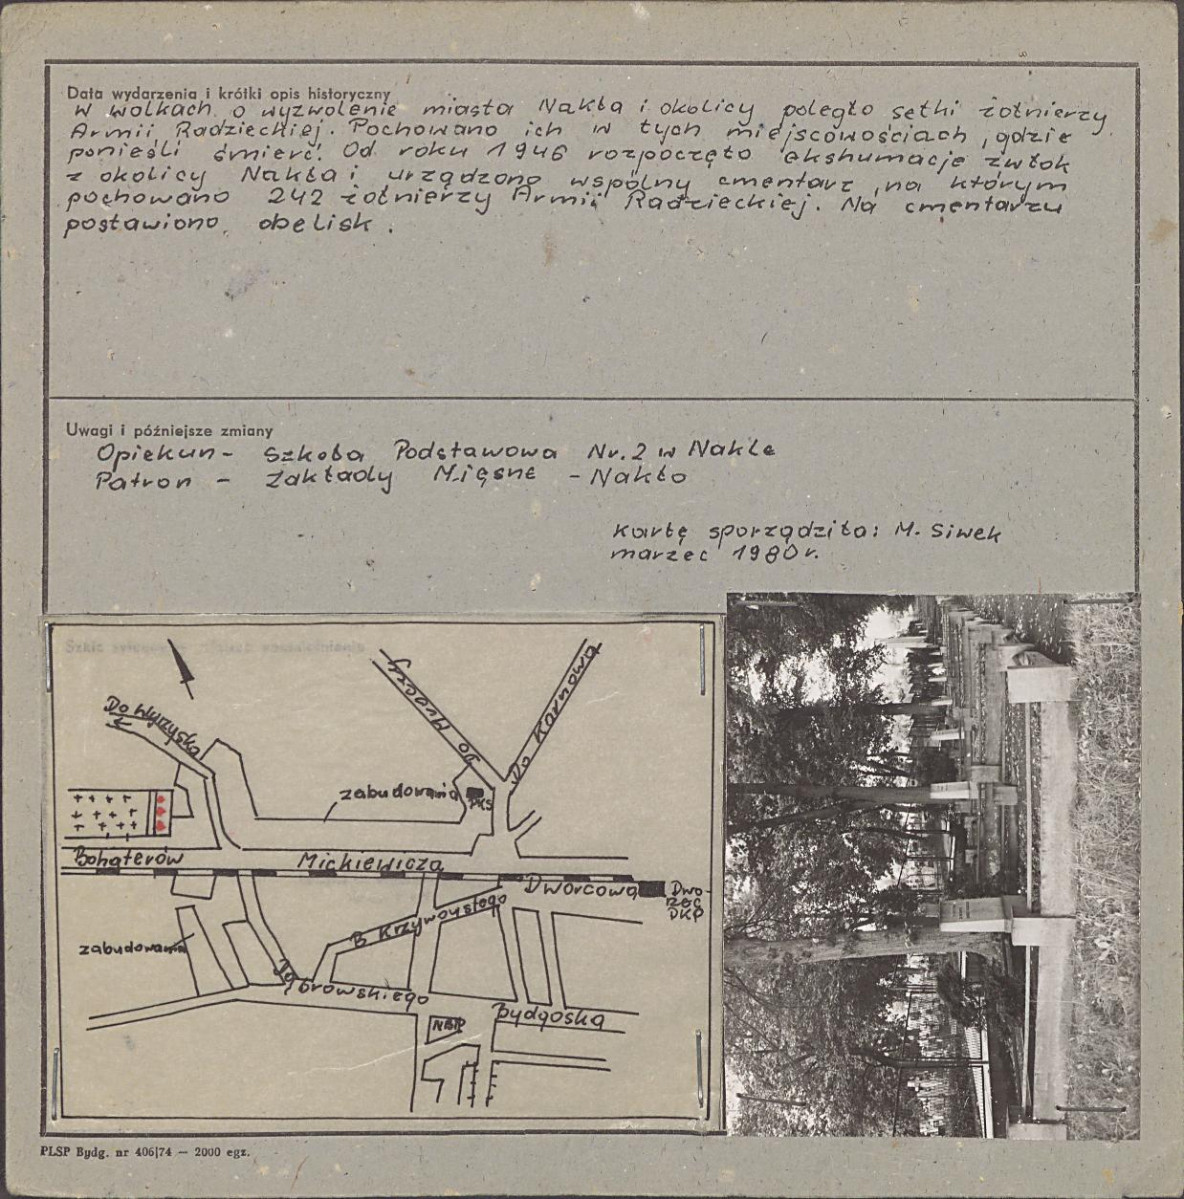 Data wydarzenia i krótki opis historyczny
W walkach o wyzwolenie miasta Nakła i okolicy poległo setki żołnierzy
Armii Radzieckiej. Pochowano ich w tych miejscowościach, gdzie
ponieśli śmierć. Od roku 1946 rozpoczęto ekshumacje zwłok
z okolicy Nakła i urządzono wspólny cmentarz, na którym
pochowano 242 żołnierzy Armii Radzieckiej. Na cmentarzu
postawiono obelisk.
Uwagi i późniejsze zmiany
Opiekun - Szkoła Podstawowa Nr. 2 w Nakle
Patron - Zakłady Mięsne - Nakło
Kartę sporządziła: M. Siwek
marzec 1980 r.
Do Wyrzyska
Do Mroczy
Do Karnowa
zabudowania
PKS
Bohaterów
Mickiewicza
Dworcowa
Dwo-
rzec
PKP
B Krzywoustego
zabudowania
Dąbrowskiego
Bydgoska
NBP
PLSP Bydg. nr 406|74 — 2000 egz.